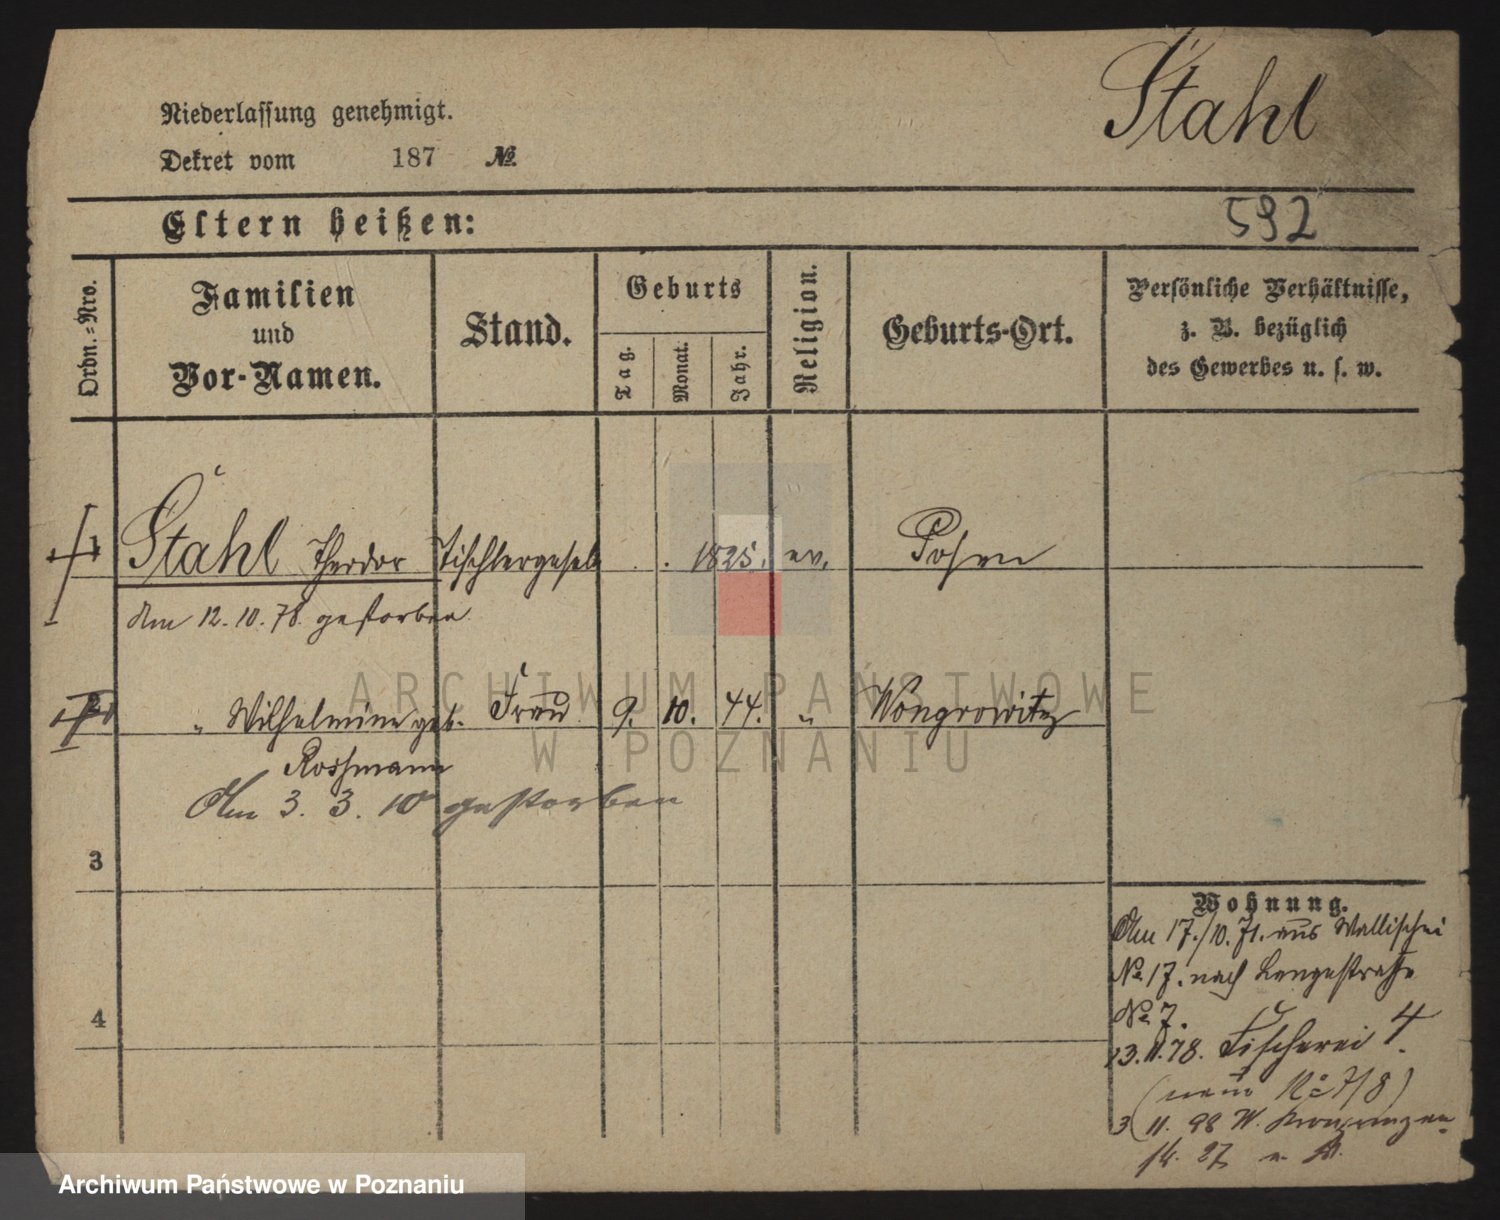 Stahl
Niederlassung genehmigt.
Dekret vom 187 №
Eltern heißen:
592
Ordn.=Nro.
Familien und Vor-Namen.
Stand.
Geburts
Tag.
Monat.
Jahr.
Religion.
Geburts-Ort.
Persönliche Verhältnisse,
z. B. bezüglich
des Gewerbes u. s. w.
1 Stahl Theodor Tischlergesell . . 1825. ev. Posen
Am 12. 10. 78. gestorben
2 " Wilhelmine geb. Frau 9. 10. 44. " Wongrowitz
Rossmann
Am 3. 3. 10 gestorben
3
4
Wohnung.
Am 17./10. 71. aus Wallischei
No 17. nach Langestraße
No 7.
13. 11. 78. Fischerei 4.
(neue No 7/8)
3 11. 98 W. Kronprinzen
str. 27
ARCHIWUM PAŃSTWOWE
W POZNANIU
Archiwum Państwowe w Poznaniu